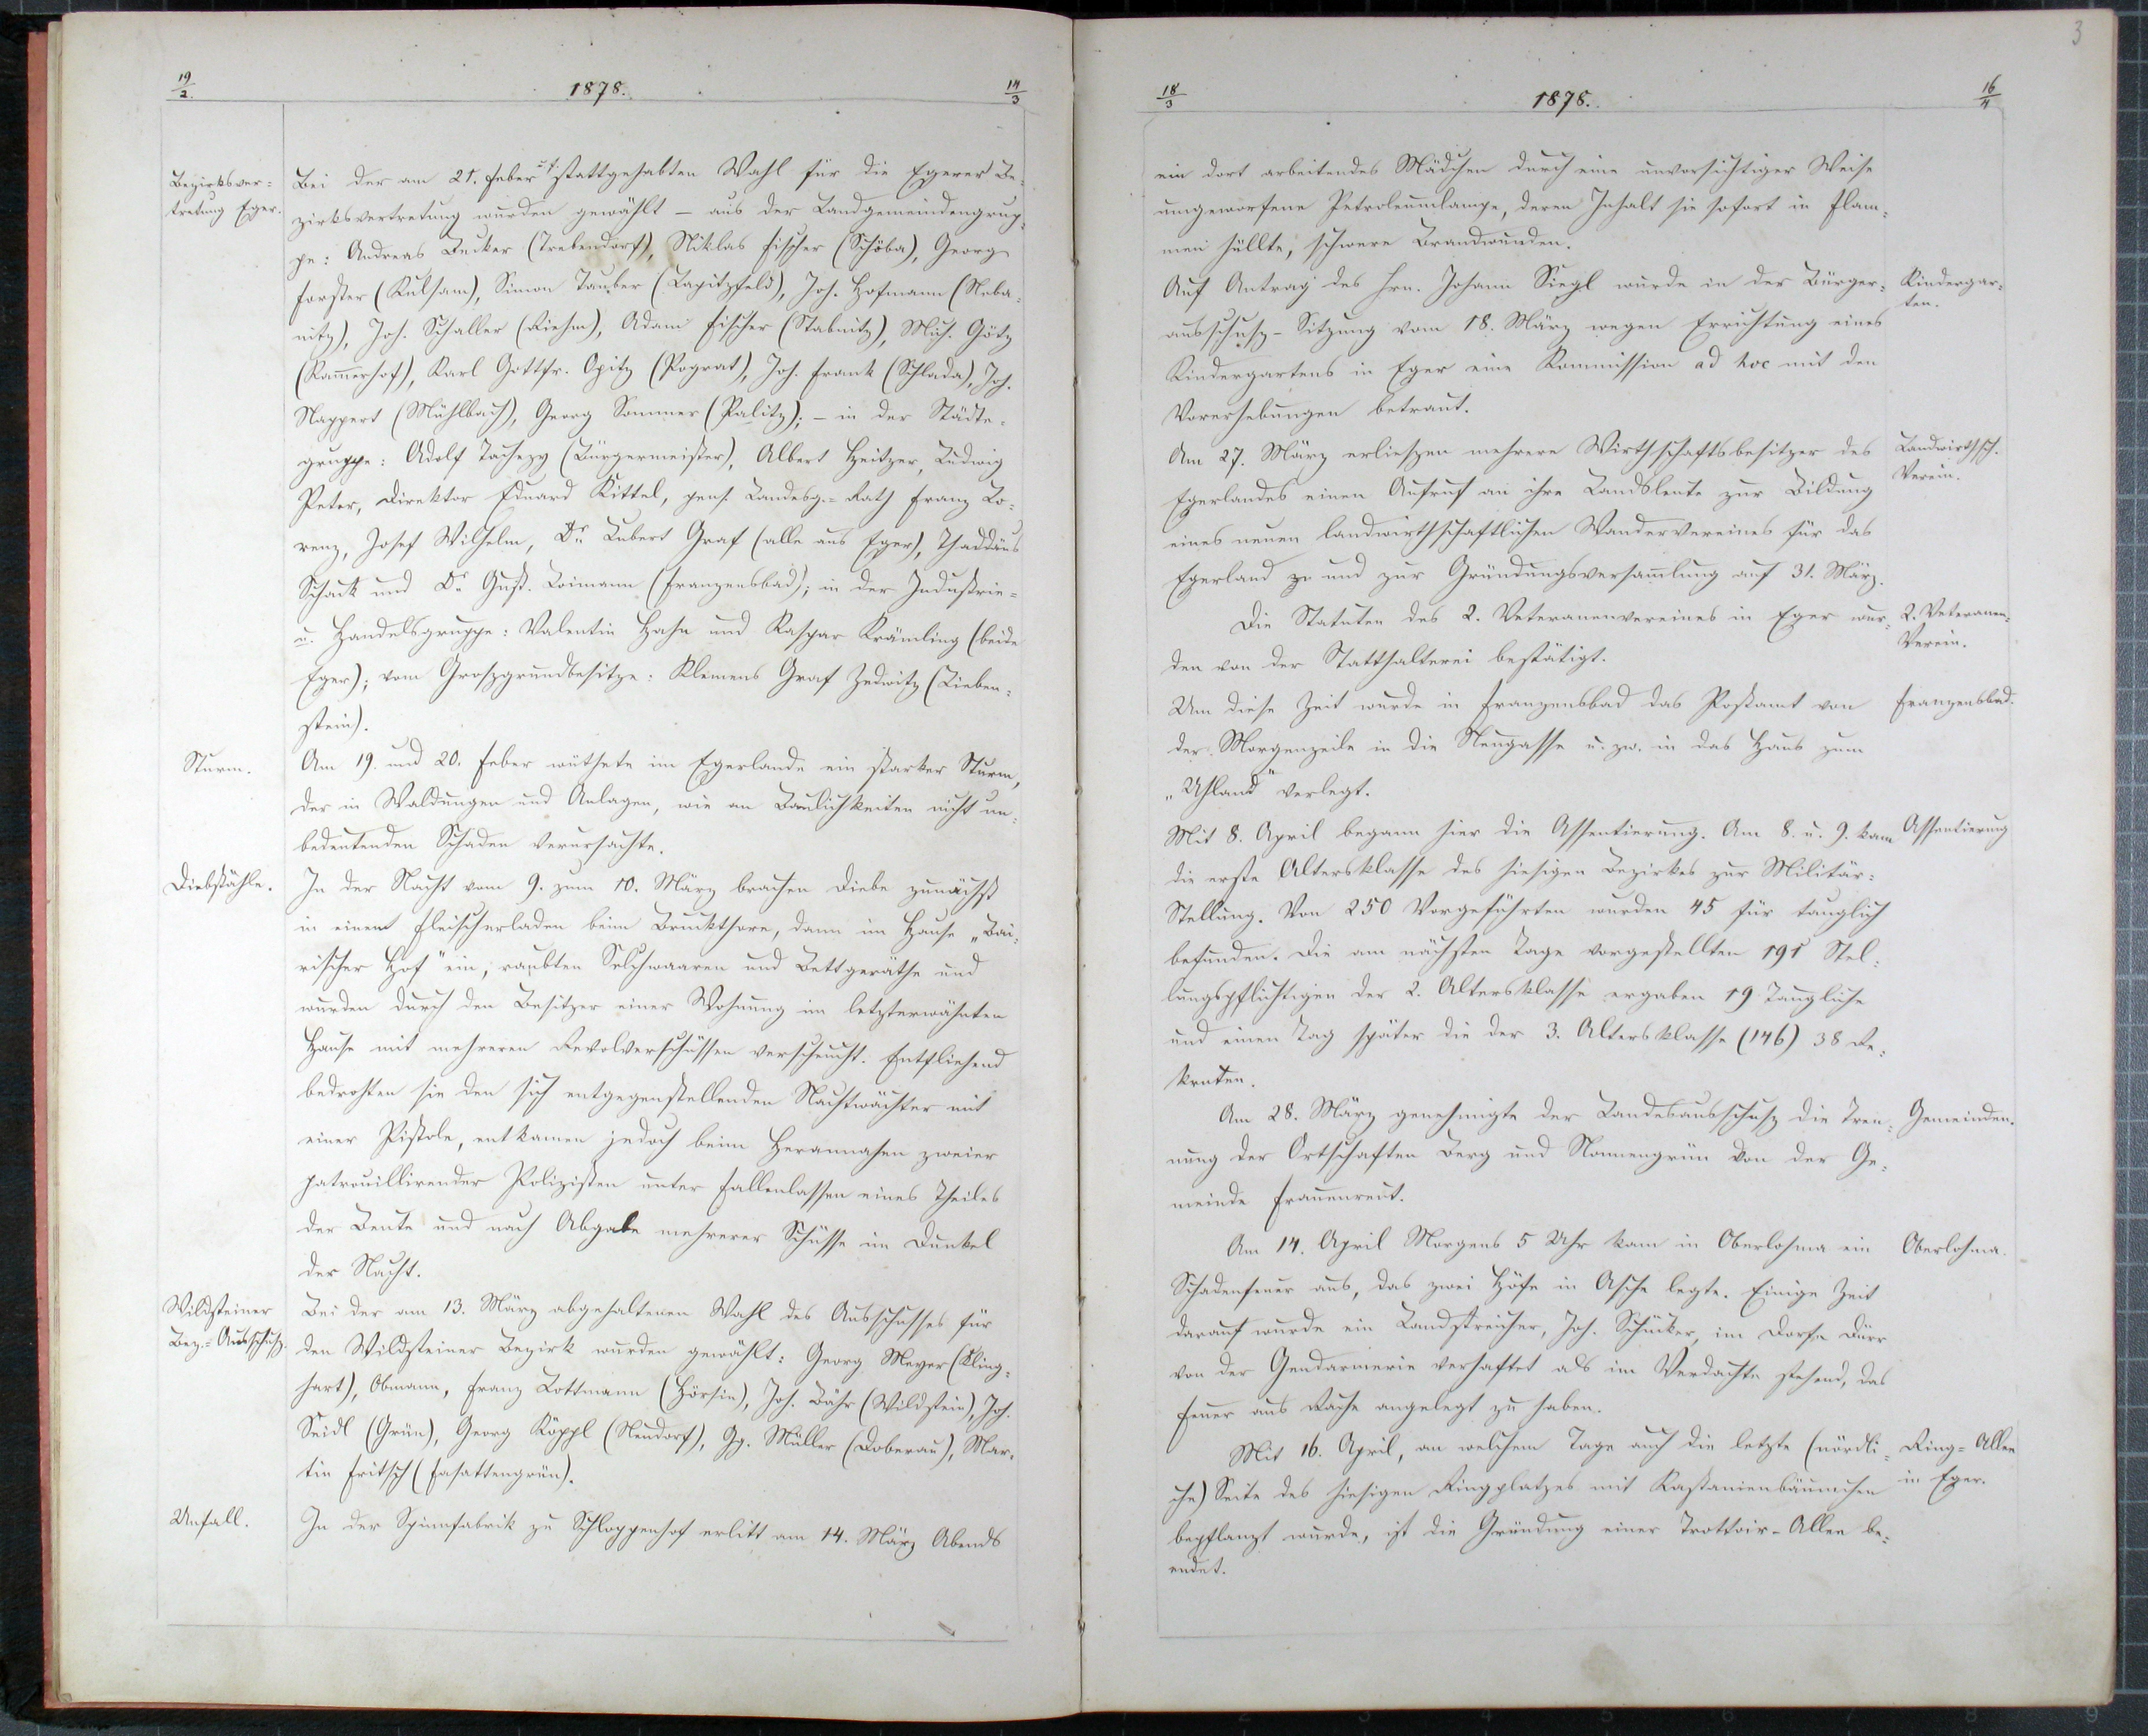 19/2 1878. 14/3
Bezirksver=
tretung Eger.
Bei der am 21. Feber u. f. stattgehabten Wahl für die Egerer Be=
zirksvertretung wurden gewählt – aus der Landgemeindengrup=
pe: Andreas Becker (Trebendorf), Niklas Fischer (Schöba), Georg
Forster (Kulsam), Simon Tauber (Lapitzfeld), Joh. Hofmann (Neba=
nitz), Joh. Schaller (Riehm), Adam Fischer (Stabnitz), Mich. Götz
(Kamerhof), Karl Gottfr. Opitz (Pograt), Joh. Frank (Schlada), Joh.
Nappert (Mühlbach), Georg Sommer (Palitz); – in der Städte=
gruppe: Adolf Tachezy (Bürgermeister), Albert Heitzer, Ludwig
Peter, Direktor Eduard Kittel, pens. Landesg.=Rath Franz Lo=
renz, Josef Wilhelm, Dr. Hubert Graf (alle aus Eger), Thaddäus
Schack und Dr. Gust. Loimann (Franzensbad); in der Industrie=
u. Handelsgruppe: Valentin Hahn und Kaspar Krämling (beide
Eger); vom Groszgrundbesitze: Klemens Graf Zedwitz (Lieben=
stein).
Sturm.
Am 19. und 20. Feber wüthete im Egerlande ein starker Sturm,
der in Waldungen und Anlagen, wie an Baulichkeiten nicht un=
bedeutenden Schaden verursachte.
Diebstähle.
In der Nacht vom 9. zum 10. März brachen Diebe zunächst
in einem Fleischerladen beim Bruckthore, dann im Hause „Bai=
rischer Hof" ein, raubten Selchwaaren und Bettgeräthe und
wurden durch den Besitzer einer Wohnung im letzterwähnten
Hause mit mehreren Revolverschüssen verscheucht. Entfliehend
bedrohten sie den sich entgegenstellenden Nachtwächter mit
einer Pistole, entkamen jedoch beim Herannahen zweier
patrouillirender Polizisten unter Fallenlassen eines Theiles
der Beute und nach Abgabe mehrerer Schüsse im Dunkel
der Nacht.
Wildsteiner
Bez.=Ausschusz.
Bei der am 13. März abgehaltenen Wahl des Ausschusses für
den Wildsteiner Bezirk wurden gewählt: Georg Meyer (Kling=
hart), Obmann, Franz Lottmann (Hörsin), Joh. Bähr (Wildstein), Joh.
Seidl (Grün), Georg Köppl (Neudorf), Gg. Müller (Doberau), Mar=
tin Fritsch (Fasattengrün).
Unfall.
In der Spinnfabrik zu Schloppenhof erlitt am 14. März Abends
3
18/3 1878. 16/4
ein dort arbeitendes Mädchen durch eine unvorsichtiger Weise
umgeworfene Petroleumlampe, deren Inhalt sie sofort in Flam=
men hüllte, schwere Brandwunden.
Auf Antrag des Hrn. Johann Siegl wurde in der Bürger=
ausschusz-Sitzung vom 18. März wegen Errichtung eines
Kindergartens in Eger eine Kommission ad hoc mit den
Vorerhebungen betraut.
Kindergar=
ten.
Am 27. März erlieszen mehrere Wirthschaftsbesitzer des
Egerlandes einen Aufruf an ihre Landsleute zur Bildung
eines neuen landwirthschaftlichen Wandervereines für das
Egerland zu und zur Gründungsversamlung auf 31. März.
Landwirthsch.
Verein.
Die Statuten des 2. Veteranenvereines in Eger wur=
den von der Statthalterei bestätigt.
2. Veteranen=
Verein.
Um diese Zeit wurde in Franzensbad das Postamt von
der Morgenzeile in die Neugasse u. zw. in das Haus zum
„Uhland" verlegt.
Franzensbad.
Mit 8. April begann hier die Assentierung. Am 8. u. 9. kam
die erste Altersklasse des hiesigen Bezirkes zur Militär=
Stellung. Von 250 Vorgeführten wurden 45 für tauglich
befunden. Die am nächsten Tage vorgestellten 191 Stel=
lungspflichtigen der 2. Altersklasse ergaben 19 Taugliche
und einen Tag später die der 3. Altersklasse (146) 38 Re=
kruten.
Assentierung
Am 28. März genehmigte der Landesausschusz die Tren=
nung der Ortschaften Berg und Nonnengrün von der Ge=
meinde Frauenreut.
Gemeinden.
Am 14. April Morgens 5 Uhr kam in Oberlohma ein
Schadenfeuer aus, das zwei Höfe in Asche legte. Einige Zeit
darauf wurde ein Landstreicher, Joh. Schücker, im Dorfe Dürr
von der Gendarmerie verhaftet als im Verdachte stehend, das
Feuer aus Rache angelegt zu haben.
Oberlohma.
Mit 16. April, an welchem Tage auch die letzte (nördli=
che) Seite des hiesigen Ringplatzes mit Kastanienbäumchen
bepflanzt wurde, ist die Gründung einer Trottoir-Allee be=
endet.
Ring=Allee
in Eger.